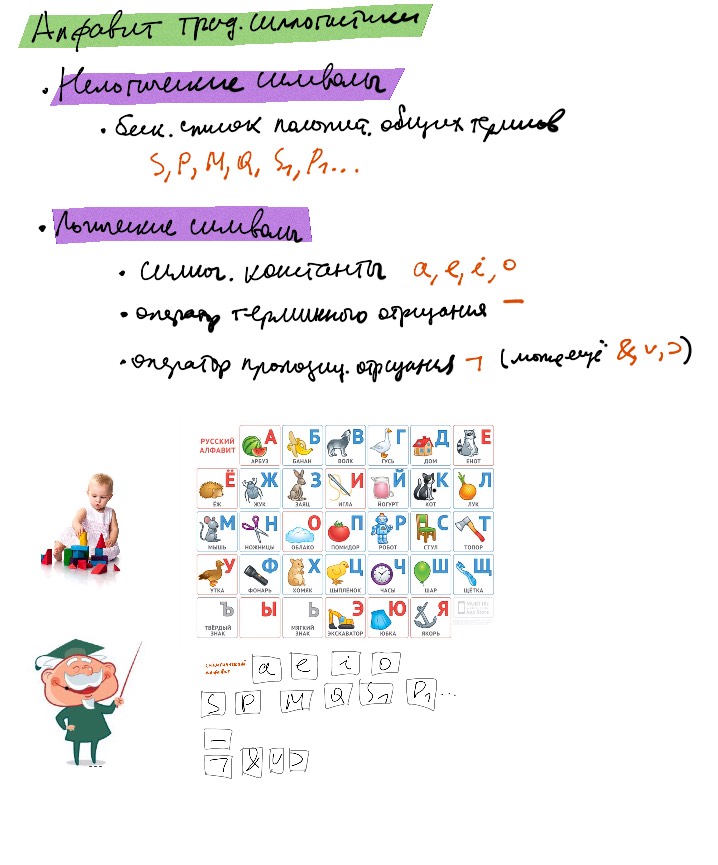 Алфавит трад. силлогистики
• Нелогические символы
• беск. список положит. общих терминов
S, P, M, Q, S₁, P₁...
• Логические символы
• силлог. константы a, e, i, o
• оператор терминного отрицания —
• оператор пропозиц. отрицания ¬ (може ещё &, ∨, ⊃)
РУССКИЙ АЛФАВИТ
А Б В Г Д Е
АРБУЗ БАНАН ВОЛК ГУСЬ ДОМ ЕНОТ
Ё Ж З И Й К Л
ЁЖ ЖУК ЗАЯЦ ИГЛА ЙОГУРТ КОТ ЛУК
М Н О П Р С Т
МЫШЬ НОЖНИЦЫ ОБЛАКО ПОМИДОР РОБОТ СТУЛ ТОПОР
У Ф Х Ц Ч Ш Щ
УТКА ФОНАРЬ ХОМЯК ЦЫПЛЕНОК ЧАСЫ ШАР ЩЁТКА
Ъ Ы Ь Э Ю Я
ТВЁРДЫЙ ЗНАК МЯГКИЙ ЗНАК ЭКСКАВАТОР ЮБКА ЯКОРЬ
алфавит
a e i o
S P M Q S₁ P₁ ...
—
¬ & ∨ ⊃